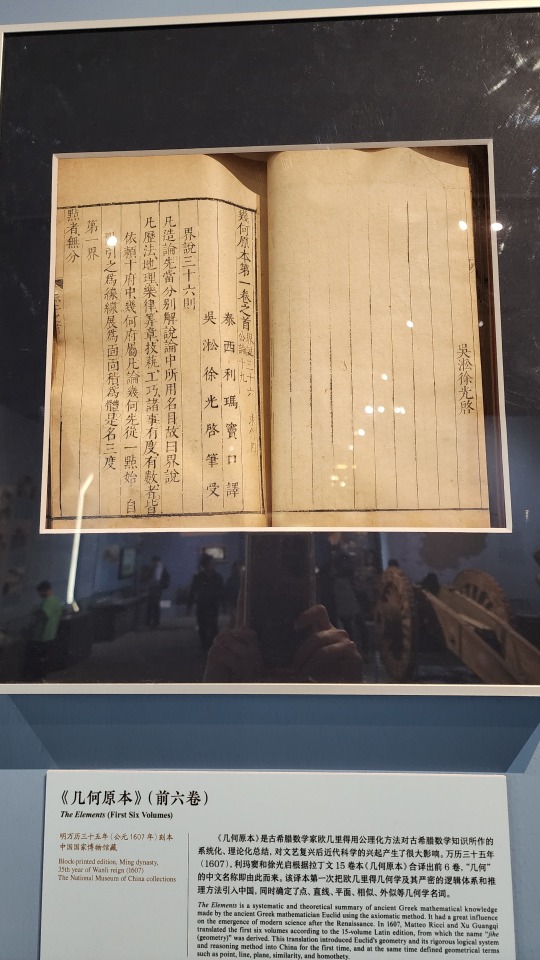 吳淞徐光啓
幾何原本第一卷之首
公論十九
泰西利瑪竇口譯
吳淞徐光啓筆受
界說三十六則
凡造論先當分別解說論中所用名目故曰界說
凡歷法地理樂律筭章技藝工巧諸事有度有數者皆
依賴十府中幾何府屬凡論幾何先從一點始 自
引之爲線線展爲面面積爲體是名三度
第一界
點者無分
《几何原本》(前六卷)
The Elements (First Six Volumes)
明万历三十五年（公元1607年）刻本
中国国家博物馆藏
Block-printed edition, Ming dynasty,
35th year of Wanli reign (1607)
The National Museum of China collections
《几何原本》是古希腊数学家欧几里得用公理化方法对古希腊数学知识所作的
系统化、理论化总结，对文艺复兴后近代科学的兴起产生了很大影响。万历三十五年
（1607），利玛窦和徐光启根据拉丁文15卷本《几何原本》合译出前6卷，“几何”
的中文名称即由此而来。该译本第一次把欧几里得几何学及其严密的逻辑体系和推
理方法引入中国，同时确定了点、直线、平面、相似、外似等几何学名词。
The Elements is a systematic and theoretical summary of ancient Greek mathematical knowledge
made by the ancient Greek mathematician Euclid using the axiomatic method. It had a great influence
on the emergence of modern science after the Renaissance. In 1607, Matteo Ricci and Xu Guangqi
translated the first six volumes according to the 15-volume Latin edition, from which the name "jihe
(geometry)" was derived. This translation introduced Euclid's geometry and its rigorous logical system
and reasoning method into China for the first time, and at the same time defined geometrical terms
such as point, line, plane, similarity, and homothety.